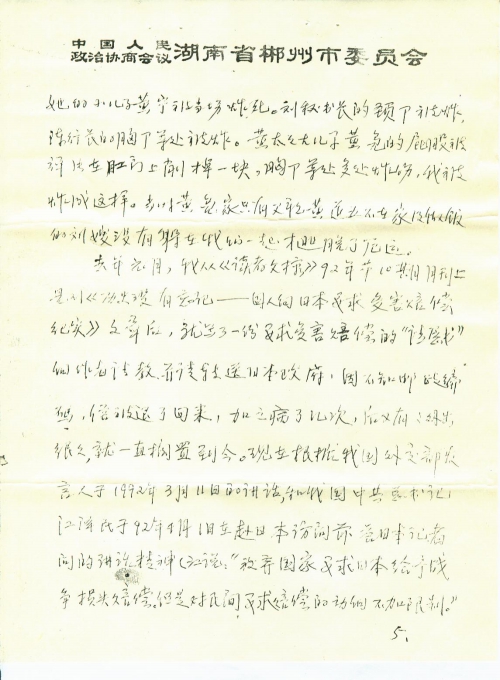 中国人民
政治协商会议 湖南省郴州市委员会
她的小儿子黄宁礼当场炸死。刘秘书长的颈下被炸,
陈行长的胸下等处被炸。黄太太大儿子黄亮的屁股被
弹片在肛门上削掉一块,胸下等处多处炸伤,我被
炸成这样。当时黄亮家只有父亲黄道五不在家没做饭
的刘嫂没有躲在我们一起才逃脱了厄运。
去年元月,我从《读者文摘》92年第10期月刊上
见到《历史没有忘记——国人向日本要求受害赔偿
纪实》文章后,就写了一份要求受害赔偿的"请愿书"
向作者请教并请转送日本政府,因不知邮政编
码,信被退了回来,加之病了几次,后又有
很久,就一直搁置到今。现在根据我国外交部发
言人于1992年3月11日的讲话,和我国中共总书记
江泽民于92年4月1日在赴日本访问前答日本记者
问的讲话精神(江说:"放弃国家要求日本给予战
争损失赔偿。但是对民间要求赔偿的动向不加限制。"
5.